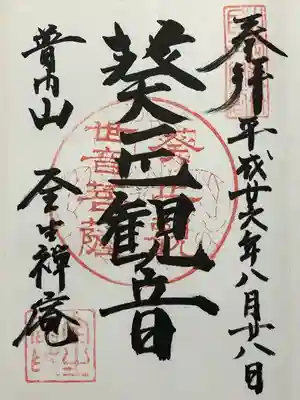 奉拝
平成廿六年八月廿八日
葵正観音
葵正観
世音菩薩
普門山
禅庵